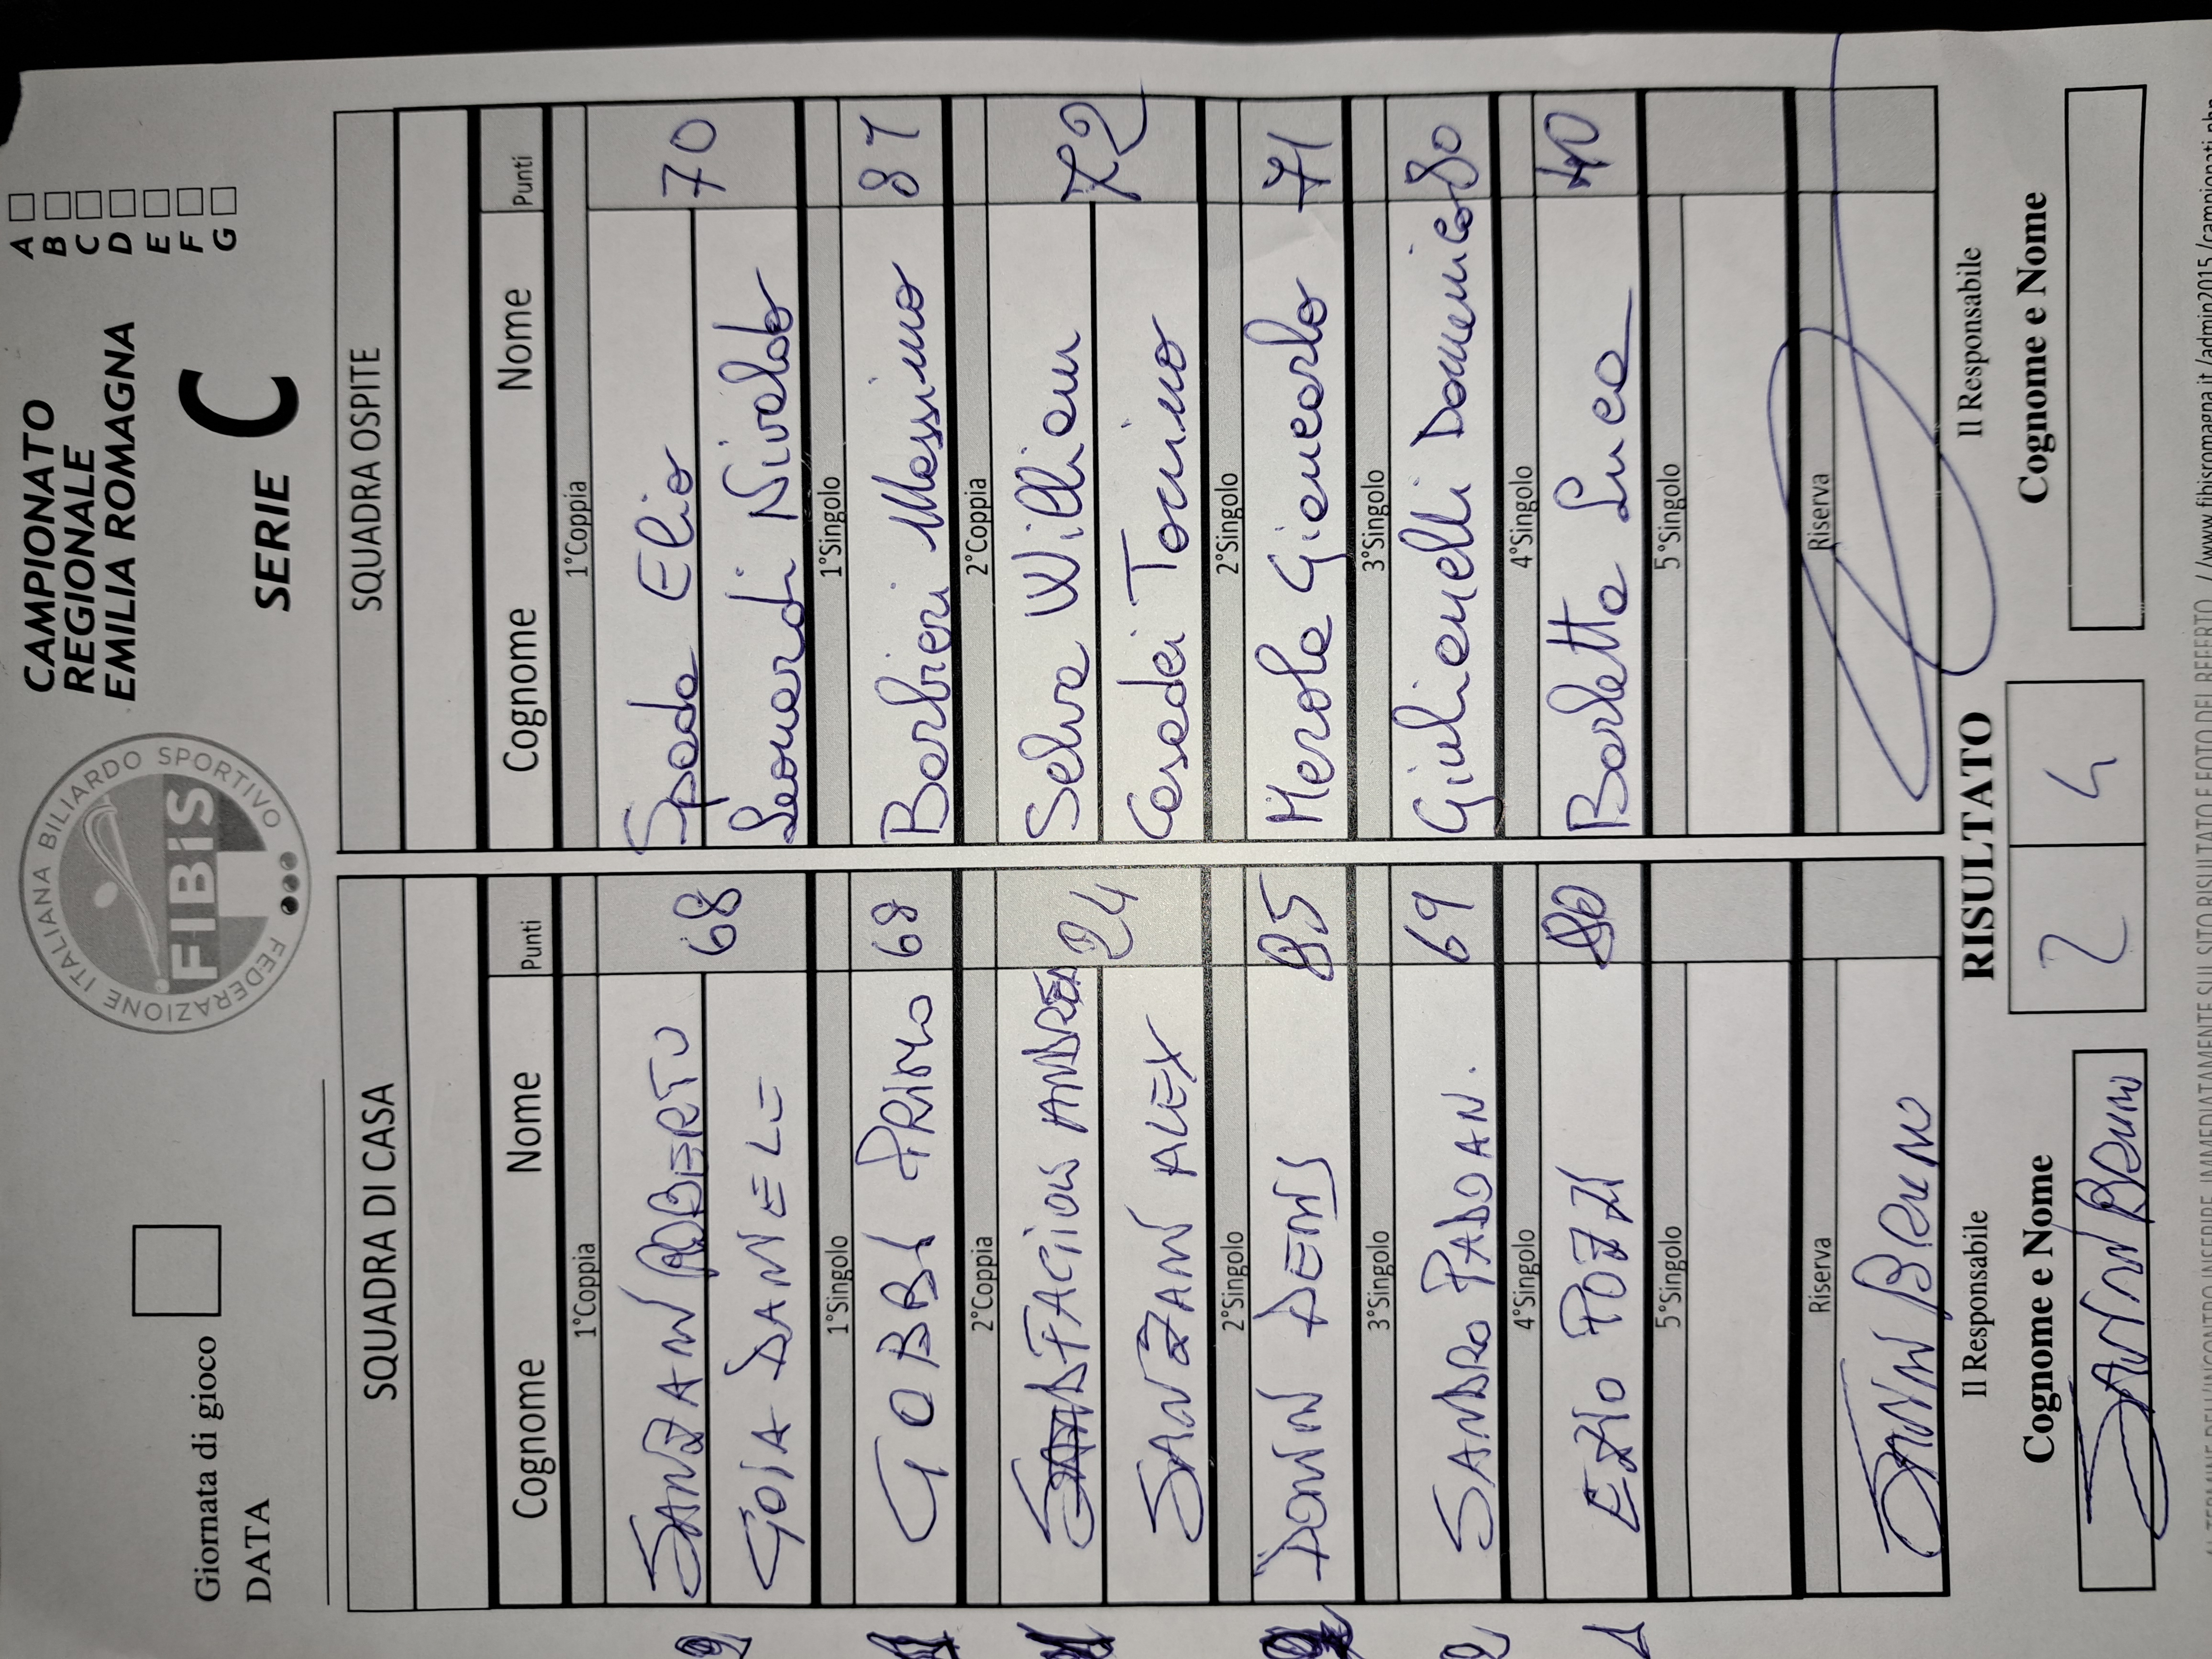 FEDERAZIONE ITALIANA BILIARDO SPORTIVO
FIBiS
CAMPIONATO
REGIONALE
EMILIA ROMAGNA
SERIE C
A
B
C
D
E
F
G
Giornata di gioco
DATA
SQUADRA DI CASA SQUADRA OSPITE
Cognome Nome Punti Cognome Nome Punti
1°Coppia 1°Coppia
SANZANI ROBERTO 68 Spada Elio 70
GOIA DANIELE Leonardi Nivaldo
1°Singolo 1°Singolo
GOBBI PRIMO 68 Barbieri Massimo 87
2°Coppia 2°Coppia
ANDREA 24 Selva William 72
SANZANI ALEX Casadei Tonino
2°Singolo 2°Singolo
DONINI DENIS 85 Merola Giancarlo 71
3°Singolo 3°Singolo
SANDRO PADOAN. 69 Giulianelli Domenico 80
4°Singolo 4°Singolo
EZIO POZZI 80 Barletta Luca 40
5°Singolo 5°Singolo
Riserva Riserva
BRUNO
Il Responsabile RISULTATO Il Responsabile
Cognome e Nome 2 4 Cognome e Nome
BRUNO